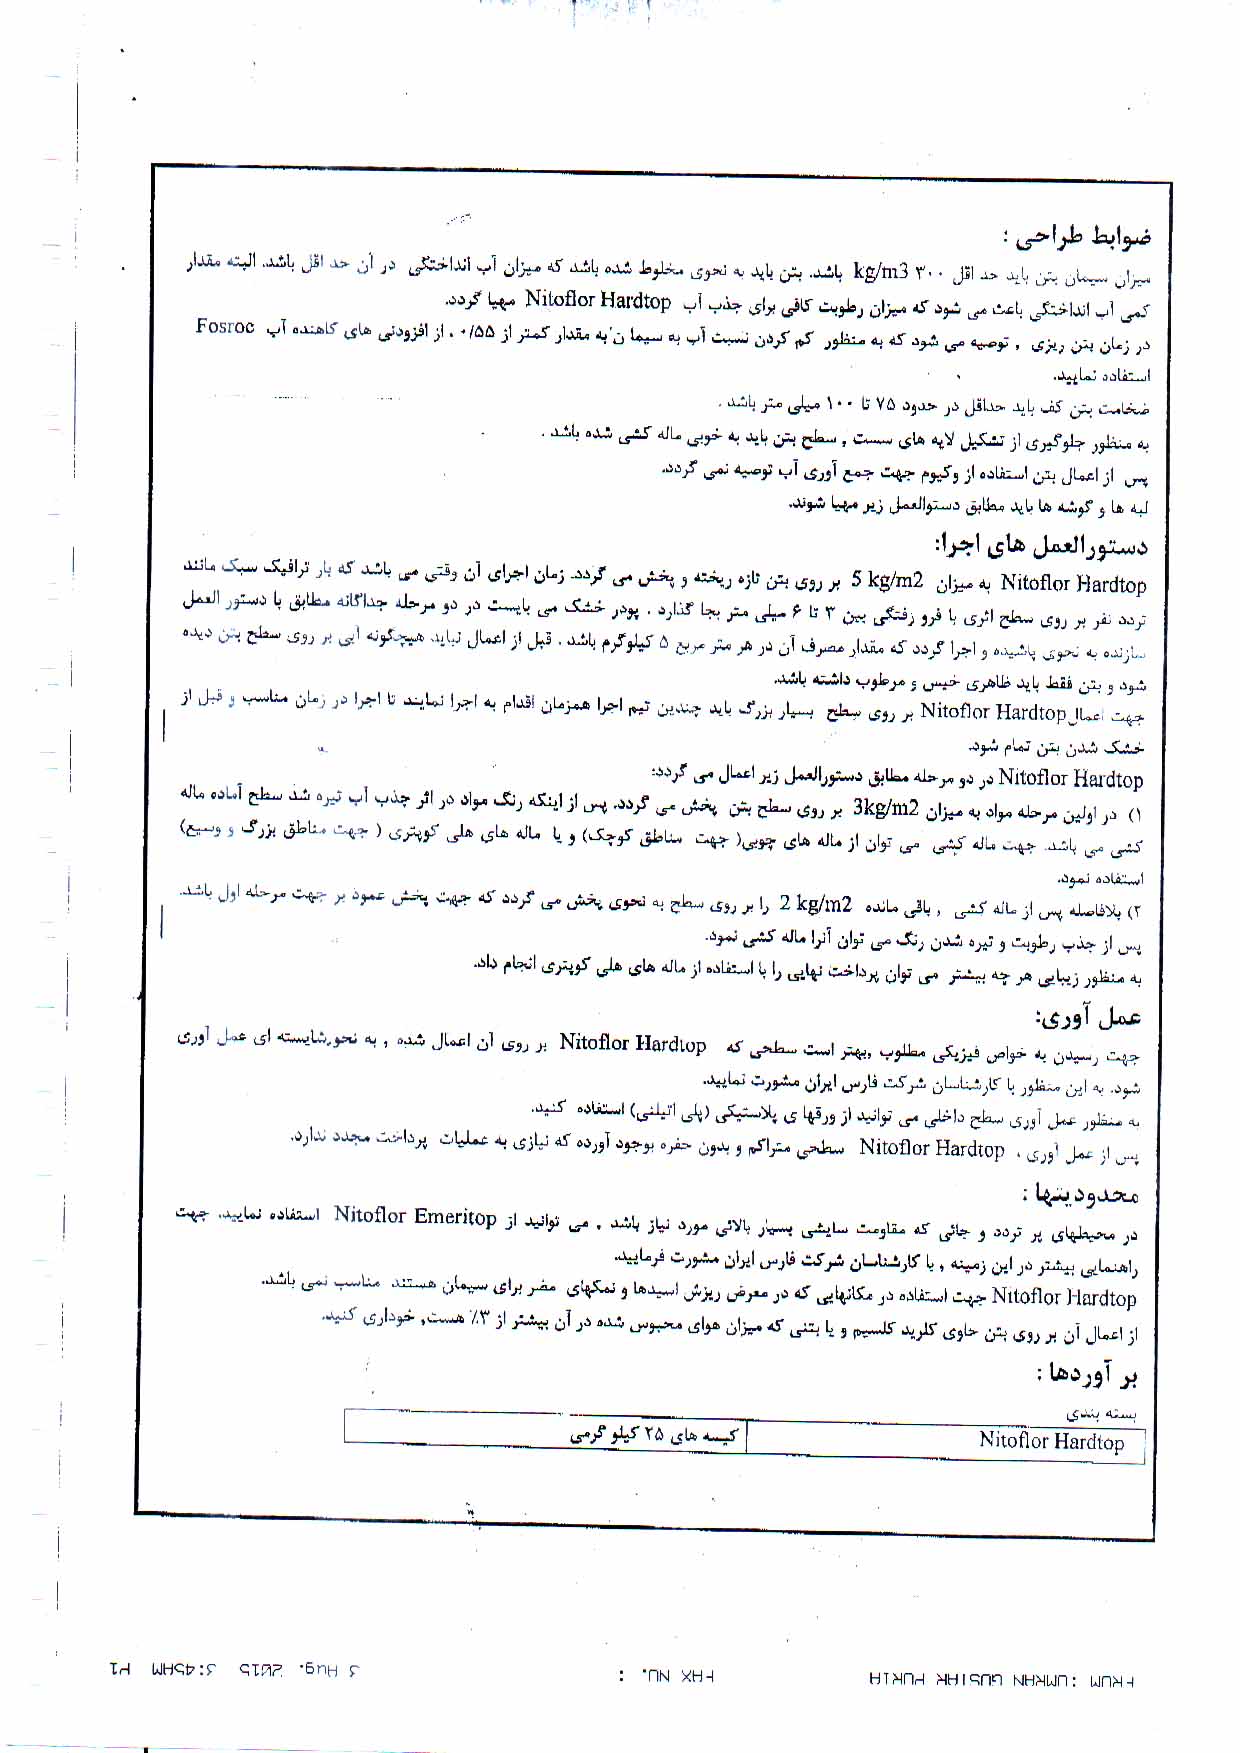 ضوابط طراحی :
میزان سیمان بتن باید حد اقل ۳۰۰ kg/m3 باشد. بتن باید به نحوی مخلوط شده باشد که میزان آب انداختگی در آن حد اقل باشد. البته مقدار
کمی آب انداختگی باعث می شود که میزان رطوبت کافی برای جذب آب Nitoflor Hardtop مهیا گردد.
در زمان بتن ریزی , توصیه می شود که به منظور کم کردن نسبت آب به سیمان به مقدار کمتر از ۰/۵۵ ، از افزودنی های کاهنده آب Fosroc
استفاده نمایید.
ضخامت بتن کف باید حداقل در حدود ۷۵ تا ۱۰۰ میلی متر باشد .
به منظور جلوگیری از تشکیل لایه های سست , سطح بتن باید به خوبی ماله کشی شده باشد .
پس از اعمال بتن استفاده از وکیوم جهت جمع آوری آب توصیه نمی گردد.
لبه ها و گوشه ها باید مطابق دستوالعمل زیر مهیا شوند.
دستورالعمل های اجرا:
Nitoflor Hardtop به میزان 5 kg/m2 بر روی بتن تازه ریخته و پخش می گردد. زمان اجرای آن وقتی می باشد که بار ترافیک سبک مانند
تردد نفر بر روی سطح اثری با فرو رفتگی بین ۳ تا ۶ میلی متر بجا گذارد . پودر خشک می بایست در دو مرحله جداگانه مطابق با دستور العمل
سازنده به نحوی پاشیده و اجرا گردد که مقدار مصرف آن در هر متر مربع ۵ کیلوگرم باشد . قبل از اعمال نباید هیچگونه آبی بر روی سطح بتن دیده
شود و بتن فقط باید ظاهری خیس و مرطوب داشته باشد.
جهت اعمال Nitoflor Hardtop بر روی سطح بسیار بزرگ باید چندین تیم اجرا همزمان اقدام به اجرا نمایند تا اجرا در زمان مناسب و قبل از
خشک شدن بتن تمام شود.
Nitoflor Hardtop در دو مرحله مطابق دستورالعمل زیر اعمال می گردد:
۱) در اولین مرحله مواد به میزان 3kg/m2 بر روی سطح بتن پخش می گردد. پس از اینکه رنگ مواد در اثر جذب آب تیره شد سطح آماده ماله
کشی می باشد. جهت ماله کشی می توان از ماله های چوبی( جهت مناطق کوچک) و یا ماله های هلی کوپتری ( جهت مناطق بزرگ و وسیع)
استفاده نمود.
۲) بلافاصله پس از ماله کشی , باقی مانده 2 kg/m2 را بر روی سطح به نحوی پخش می گردد که جهت پخش عمود بر جهت مرحله اول باشد.
پس از جذب رطوبت و تیره شدن رنگ می توان آنرا ماله کشی نمود.
به منظور زیبایی هر چه بیشتر می توان پرداخت نهایی را با استفاده از ماله های هلی کوپتری انجام داد.
عمل آوری:
جهت رسیدن به خواص فیزیکی مطلوب ,بهتر است سطحی که Nitoflor Hardtop بر روی آن اعمال شده , به نحو شایسته ای عمل آوری
شود. به این منظور با کارشناسان شرکت فارس ایران مشورت نمایید.
به منظور عمل آوری سطح داخلی می توانید از ورقها ی پلاستیکی (پلی اتیلنی) استفاده کنید.
پس از عمل آوری ، Nitoflor Hardtop سطحی متراکم و بدون حفره بوجود آورده که نیازی به عملیات پرداخت مجدد ندارد.
محدودیتها :
در محیطهای پر تردد و جائی که مقاومت سایشی بسیار بالائی مورد نیاز باشد , می توانید از Nitoflor Emeritop استفاده نمایید. جهت
راهنمایی بیشتر در این زمینه , با کارشناسان شرکت فارس ایران مشورت فرمایید.
Nitoflor Hardtop جهت استفاده در مکانهایی که در معرض ریزش اسیدها و نمکهای مضر برای سیمان هستند مناسب نمی باشد.
از اعمال آن بر روی بتن حاوی کلرید کلسیم و یا بتنی که میزان هوای محبوس شده در آن بیشتر از ۳٪ هست, خودداری کنید.
بر آوردها :
بسته بندی
Nitoflor Hardtop کیسه های ۲۵ کیلو گرمی
FAX NO. :